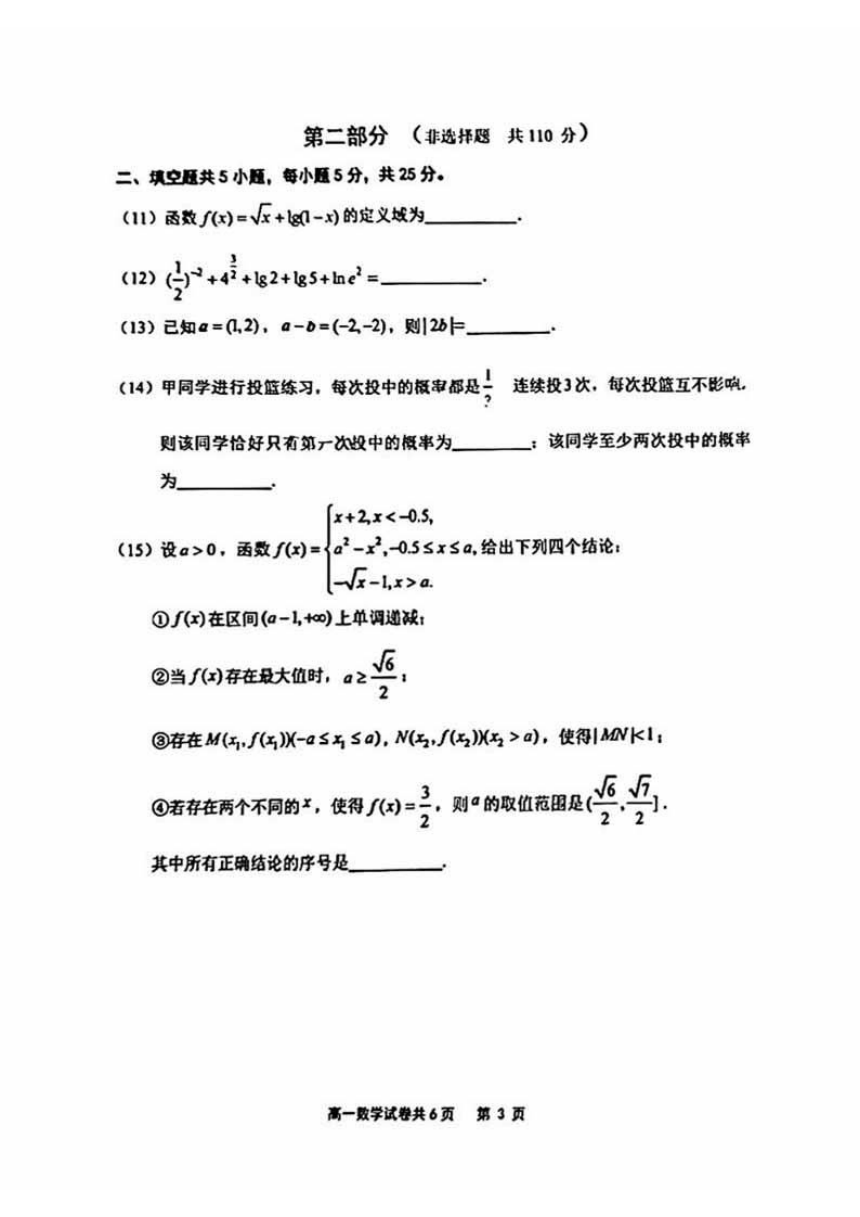 第二部分 （非选择题 共 110 分）
二、填空题共 5 小题，每小题 5 分，共 25 分。
（11）函数 f(x)=√x+lg(1−x) 的定义域为________.
（12）(1/2)^{-2}+4^{3/2}+lg2+lg5+ln e²=________.
（13）已知 a=(1,2)，a−b=(−2,−2)，则|2b|=________.
（14）甲同学进行投篮练习，每次投中的概率都是 1/? 连续投3次，每次投篮互不影响.
则该同学恰好只有第一次投中的概率为________；该同学至少两次投中的概率
为________.
（15）设 a>0，函数 f(x)={x+2,x<−0.5, a²−x²,−0.5≤x≤a, −√x−1,x>a. 给出下列四个结论：
①f(x) 在区间 (a−1,+∞) 上单调递减；
②当 f(x) 存在最大值时，a≥√6/2；
③存在 M(x₁,f(x₁))(−a≤x₁≤a)，N(x₂,f(x₂))(x₂>a)，使得|MN|<1；
④若存在两个不同的 x，使得 f(x)=3/2，则 a 的取值范围是 (√6/2,√7/2].
其中所有正确结论的序号是________.
高一数学试卷共 6 页 第 3 页